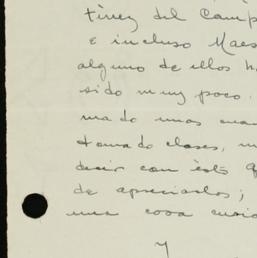 tínez del Camp
e incluso Maes
alguno de ellos h
sido muy poco.
mado unas cuan
tomado clases, m
decir con ésto q
de apreciarlos;
una cosa curio
Y